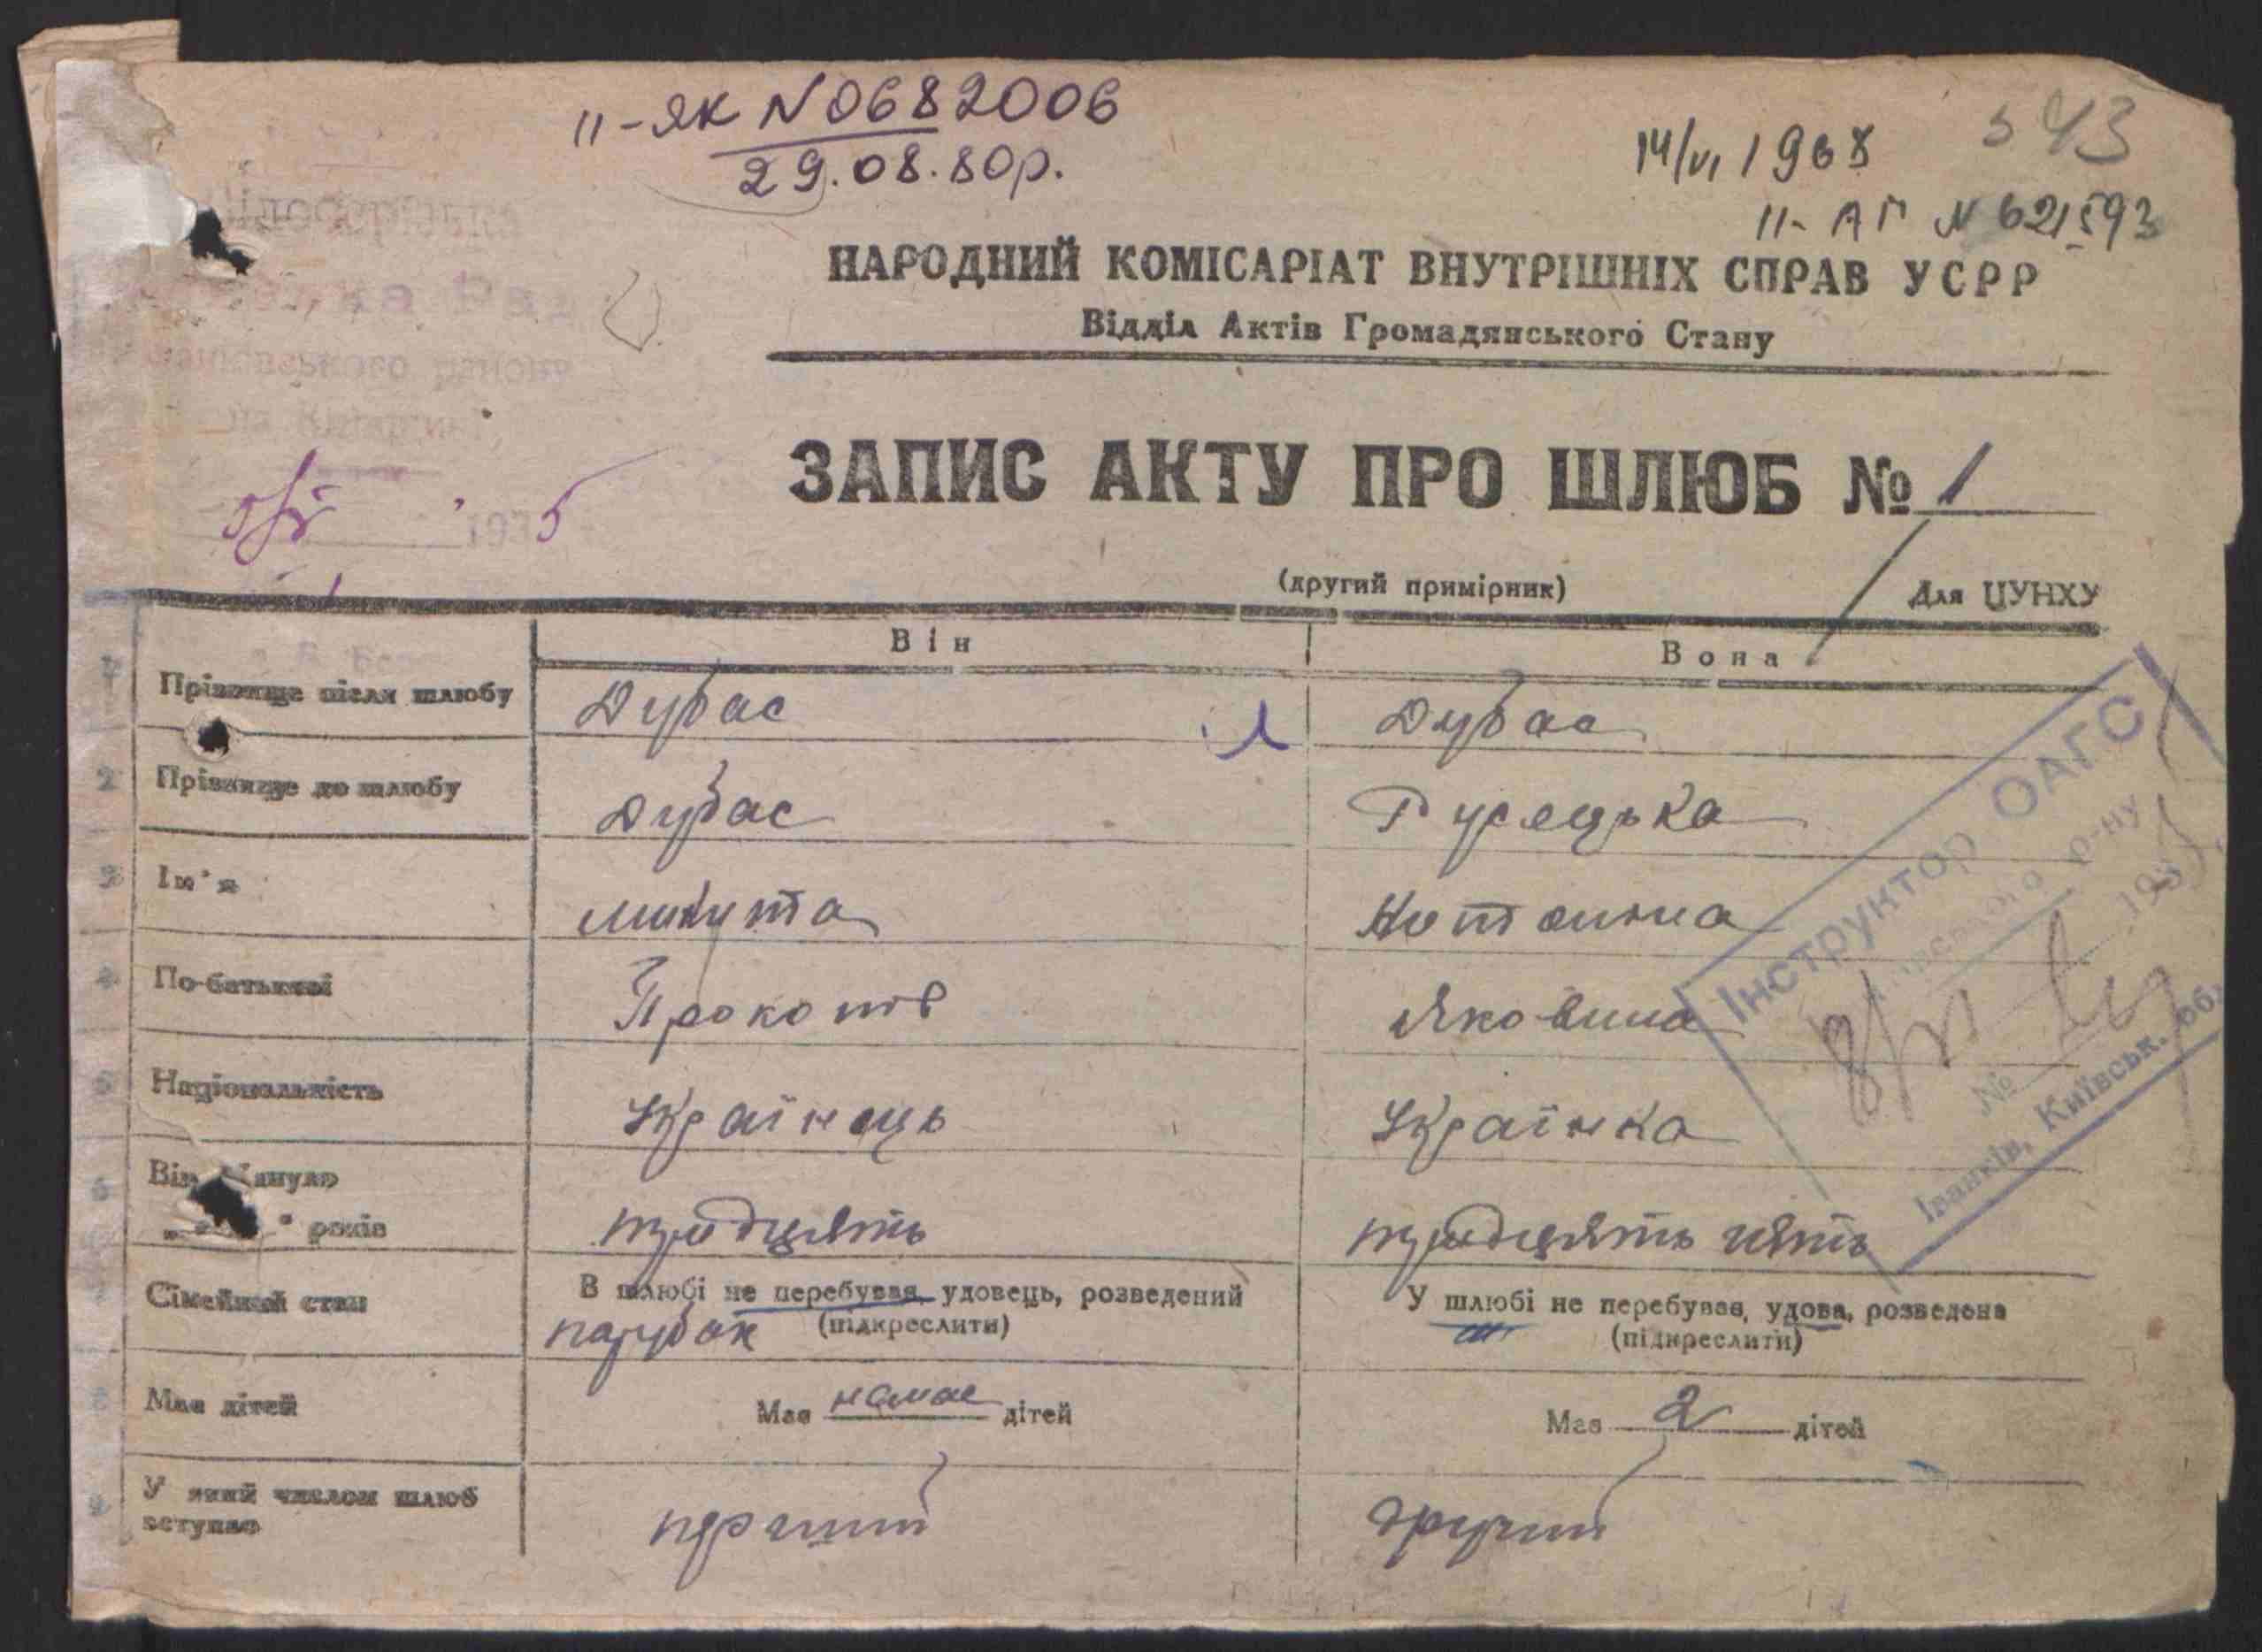 II-ЯК N 0682006
29.08.80р.
14/VI 1968
543
II-АГ N 621593
НАРОДНИЙ КОМІСАРІАТ ВНУТРІШНІХ СПРАВ УСРР
Відділ Актів Громадянського Стану
району
ЗАПИС АКТУ ПРО ШЛЮБ № 1
1935
(другий примірник)
Для ЦУНХУ
Він
Вона
1 Прізвище після шлюбу Дубас Дубас
2 Прізвище до шлюбу Дубас
3 Ім'я Микита
4 По-батькові Прокопів Яковина
5 Національність Українець Українка
6 Він минуло років тридцять тридцять пять
Сімейний стан В шлюбі не перебував, удовець, розведений У шлюбі не перебував, удова, розведена
парубок (підкреслити) (підкреслити)
Має дітей Має немає дітей Має 2 дітей
У який числом шлюб вступає перший другий
Інструктор ОАГС
р-ну
193
№
Іванків, Київськ. об.